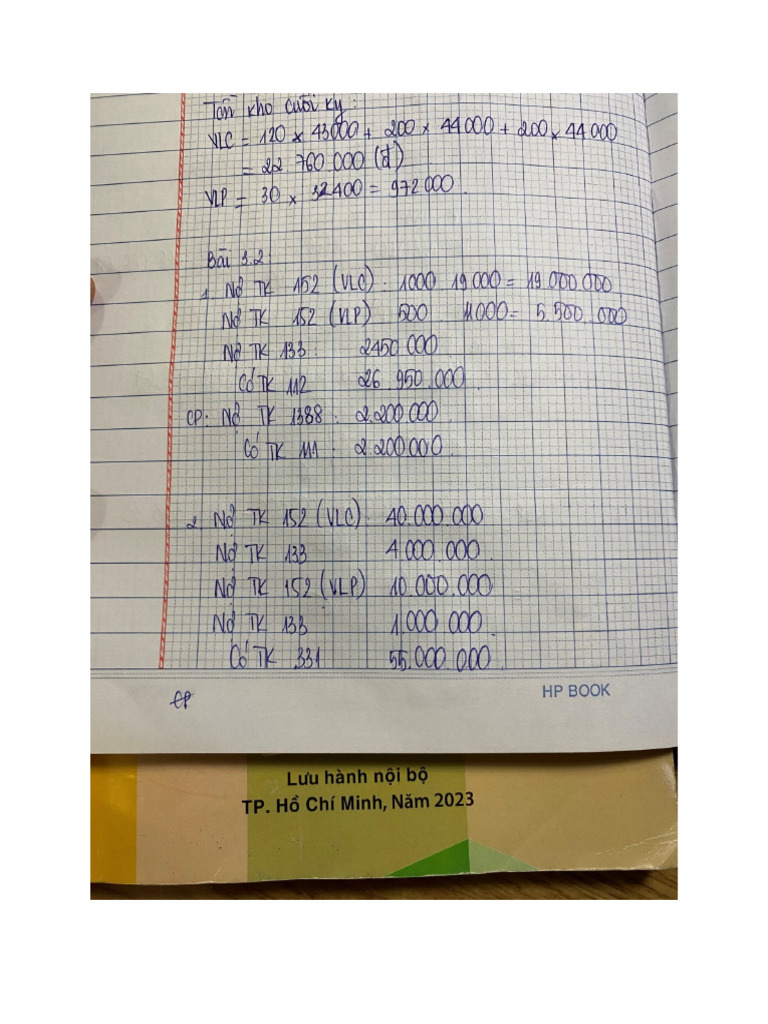 Tồn kho cuối kỳ:
VLC = 120 × 43000 + 200 × 44000 + 200 × 44000
= 22 760 000 (đ)
VLP = 30 × 32400 = 972 000.
Bài 3.2:
1. Nợ TK 152 (VLC) . 1000 19 000 = 19 000 000
Nợ TK 152 (VLP) 500 11000 = 5.500.000
Nợ TK 133: 2450 000
Có TK 112 26.950.000
CP: Nợ TK 1388: 2.200.000
Có TK 111 : 2.200.000.
2 Nợ TK 152 (VLC) 40.000.000
Nợ TK 133 4.000.000
Nợ TK 152 (VLP) 10.000.000
Nợ TK 133 1.000.000
Có TK 331 55.000.000
CP
HP BOOK
Lưu hành nội bộ
TP. Hồ Chí Minh, Năm 2023